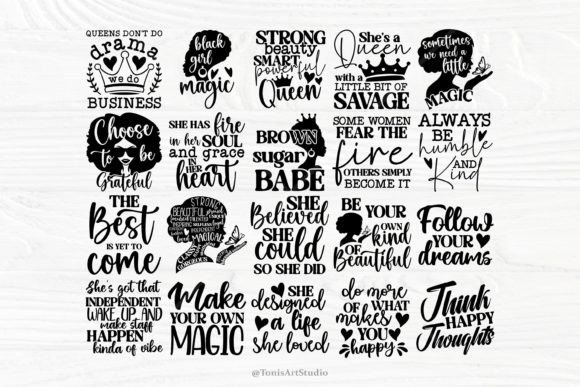 QUEENS DON'T DO
drama
we do
BUSINESS
black
girl
magic
STRONG
beauty
SMART
powerful
Queen
She's a
Queen
with a
LITTLE BIT OF
SAVAGE
sometimes
we need a
little
MAGIC
Choose
to be
Grateful
SHE HAS fire
in her SOUL
and grace
IN HER
heart
BROWN
sugar
BABE
SOME WOMEN
FEAR THE
fire
OTHERS SIMPLY
BECOME IT
ALWAYS
BE
humble
AND
Kind
THE
Best
IS YET TO
come
STRONG
BEAUTIFUL
UNIQUE
MAGICAL
GORGEOUS
SHE
Believed
SHE
could
SO SHE DID
BE YOUR
OWN
kind
OF
Beautiful
Follow
YOUR
dreams
She's got that
INDEPENDENT
WAKE UP AND
make staff
HAPPEN
kinda of vibe
Make
YOUR OWN
MAGIC
SHE
designed
a life
she loved
do more
OF WHAT
makes
YOU
happy
Think
HAPPY
Thoughts
@TonisArtStudio